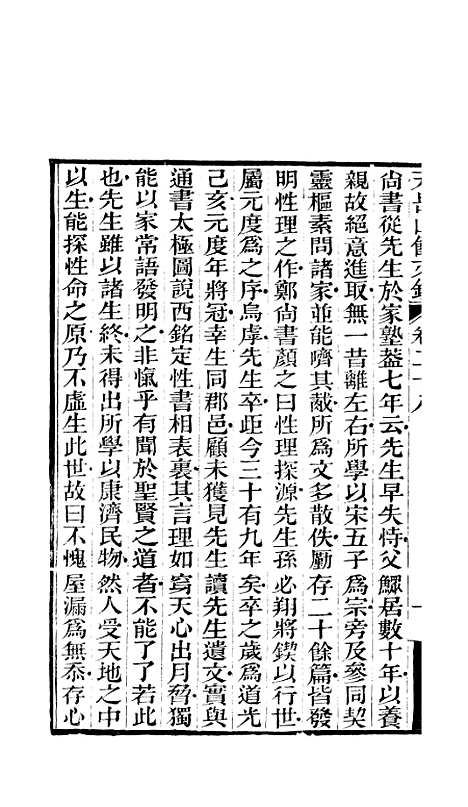 天岳山館文鈔 卷二十八 一
尚書從先生於家塾葢七年云先生早失恃父鰥居數十年以養
親故絕意進取無一昔離左右所學以宋五子爲宗旁及參同契
靈樞素問諸家並能嚌其胾所爲文多散佚勵存二十餘篇皆發
明性理之作鄭尚書顏之曰性理探源先生孫必翔將鍥以行世
屬元度爲之序烏虖先生卒距今三十有九年矣卒之歲爲道光
己亥元度年將冠幸生同郡邑顧未獲見先生讀先生遺文實與
通書太極圖說西銘定性書相表裏其言理如穿天心出月脅獨
能以家常語發明之非愾乎有聞於聖賢之道者不能了了若此
也先生雖以諸生終未得出所學以康濟民物然人受天地之中
以生能探性命之原乃不虛生此世故曰不愧屋漏爲無忝存心